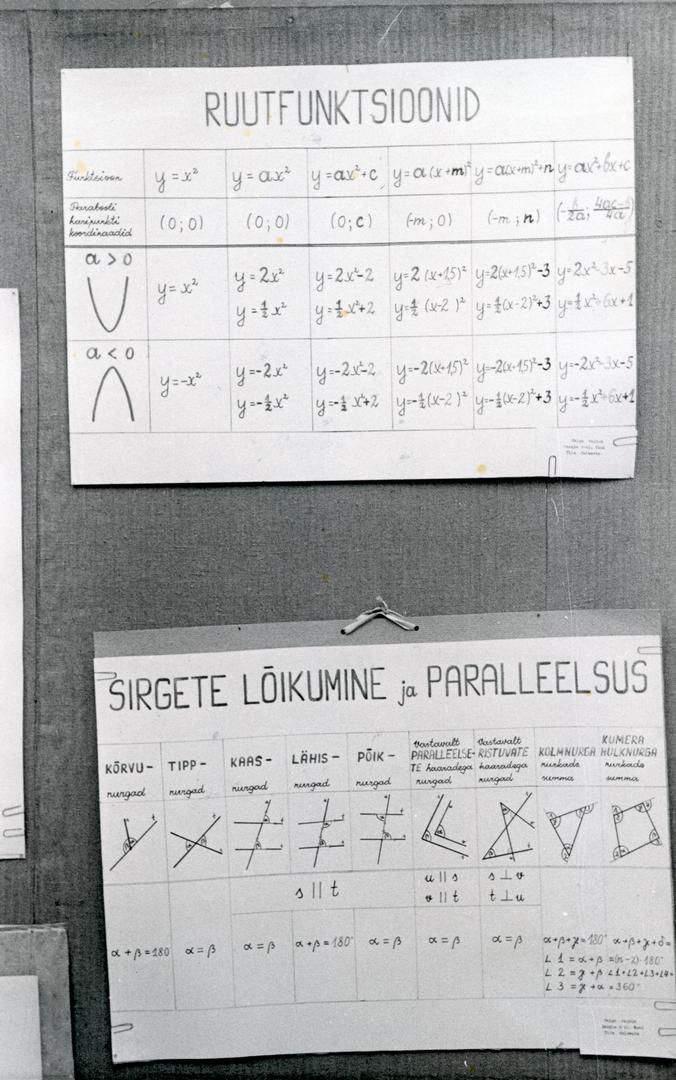 RUUTFUNKTSIOONID
Funktsioon y = x² y = ax² y = ax² + c y = a(x+m)² y = a(x+m)² + n y = ax² + bx + c
Parabooli
haripunkti
koordinaadid
(0;0) (0;0) (0;c) (-m;0) (-m;n) (-b/2a; 4ac-b²/4a)
a > 0
y = x² y = 2x² y = 2x²-2 y = 2(x+1,5)² y = 2(x+1,5)²-3 y = 2x²-3x-5
y = ½x² y = ½x²+2 y = ½(x-2)² y = ½(x-2)²+3 y = ½x²+6x+1
a < 0
y = -x² y = -2x² y = -2x²-2 y = -2(x+1,5)² y = -2(x+1,5)²-3 y = -2x²-3x-5
y = -½x² y = -½x²+2 y = -½(x-2)² y = -½(x-2)²+3 y = -½x²+6x+1
SIRGETE LÕIKUMINE ja PARALLEELSUS
KÕRVU-
nurgad
TIPP-
nurgad
KAAS-
nurgad
LÄHIS-
nurgad
PÕIK-
nurgad
Vastavalt
PARALLEELSE-
TE haaradega
nurgad
Vastavalt
RISTUVATE
haaradega
nurgad
KOLMNURGA
nurkade
summa
KUMERA
HULKNURGA
nurkade
summa
s || t
u || s
v || t
s ⊥ v
t ⊥ u
α + β = 180 α = β α = β α + β = 180° α = β α = β α = β α + β + γ = 180° α + β + γ + δ =
∠ 1 = α + β = (n-2)·180°
∠ 2 = γ + β ∠1+∠2+∠3+∠4=
∠ 3 = γ + α = 360°